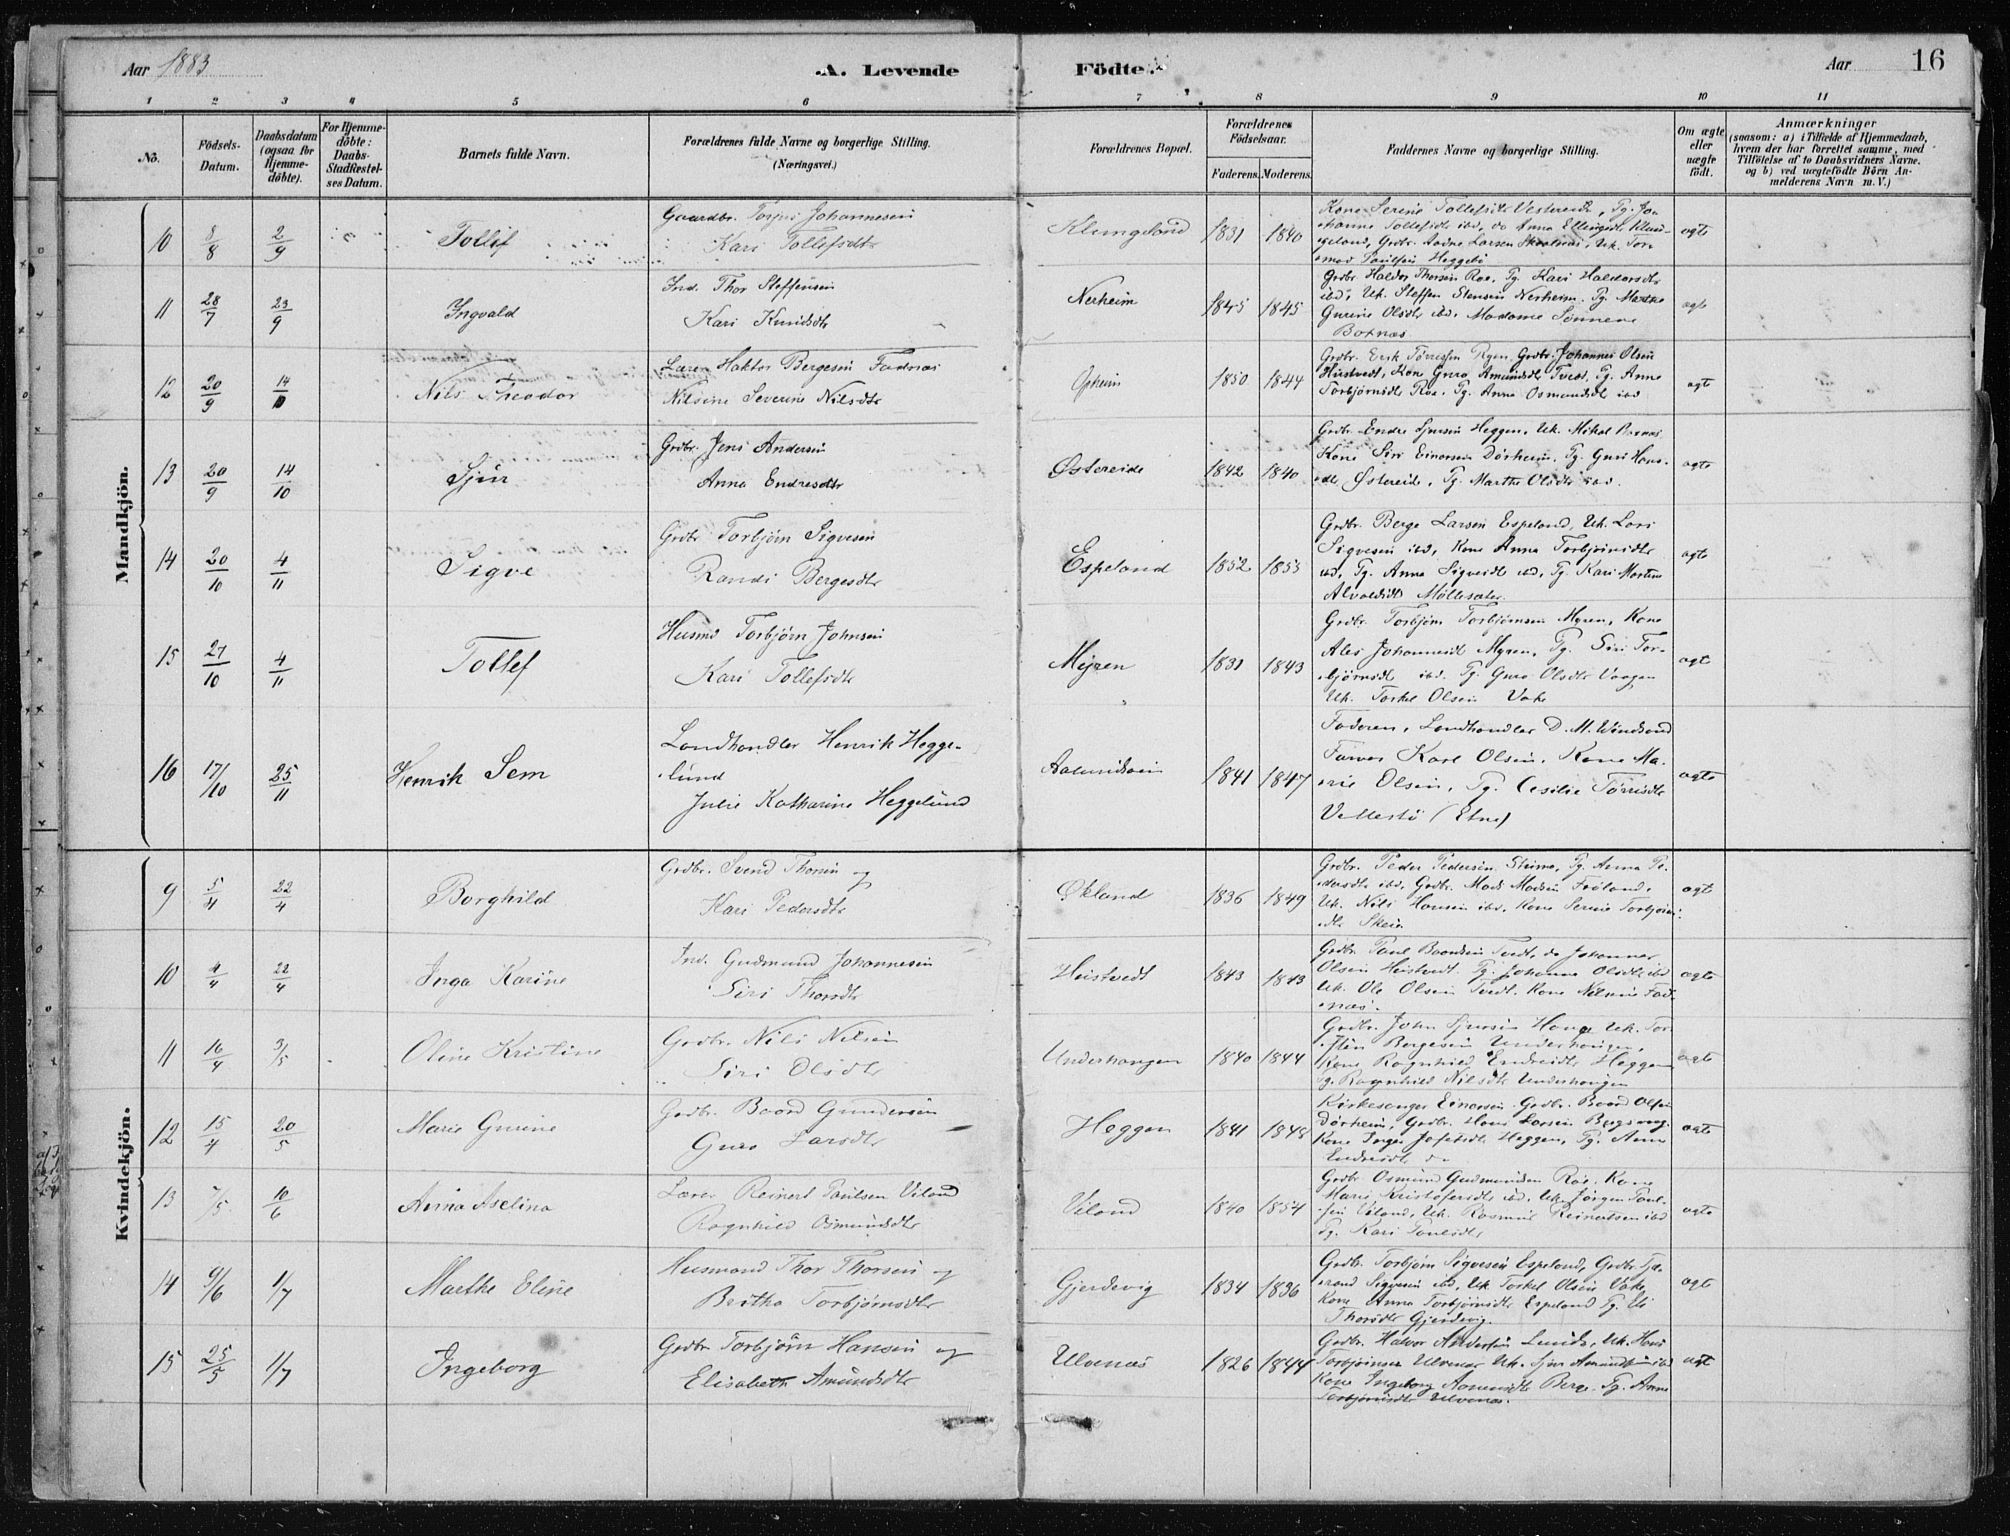 Aar 1883
A. Levende Födte.
Aar 16
1 2 3 4 5 6 7 8 9 10 11
No.
Födsels-Datum.
Daabsdatum (ogsaa for Hjemme-döbte).
For Hjemme-döbte: Daabs-Stadfæstel-ses Datum.
Barnets fulde Navn.
Forældrenes fulde Navne og borgerlige Stilling. (Næringsvei.)
Forældrenes Bopæl.
Forældrenes Födselsaar.
Faderens. Moderens.
Faddernes Navne og borgerlige Stilling.
Om ægte eller uægte födt.
Anmærkninger
(saasom: a) i Tilfælde af Hjemmedaab, hvem der har forrettet samme, med Tilföielse af to Daabsvidners Navne. og b) ved uægtefödte Börn An-melderens Navn m. V.)
Mandkjön.
10 8/8 2/9 Tollef
Gaardbr. Johannesen
Kari Tollefsdtr
Klungeland 1831 1840
Kone Serine Tollefsdtr Vestereide, Pg. Jo-
hanne Tollefsdtr ibd, do Anna Ellingsdtr Klun-
geland, Grdbr. Aadne Larsen, Uk. Tor-
mod Paulsen Heggebö
ægte
11 28/7 23/9 Ingvald
Ind. Thor Steffensen
Kari Knudsdtr
Nerheim 1845 1845
Grdbr Haldor Thorsen Roe, Pg Kari Haldorsdtr
ibd, Uk. Steffen Stensen Nerheim. Pg. Marthe
Gurine Olsdtr ibd. Madame Sönnene
Boxnæs
ægte
12 20/9 14/10 Nils Theodor
Lærer Haktor Bergesen Fadnæs
Nilsine Severine Nilsdtr
Opheim 1850 1844
Grdbr. Erik Törresen Ryen, Grdbr. Johannes Olsen
Hustvedt, Kone Guro Amundsdt Tvedt, Pg. Anna
Torbjørnsdtr Roe, Pg. Anna Osmundsdt ibd
ægte
13 20/9 14/10 Sjur
Grdbr. Jens Andersen
Anna Endresdtr
Østereide 1842 1840
Grdbr. Endre Sjursen Heggen, Uk. Mikal Boxnæs
Kone Siri Einarsen Dörheim, Pg. Guri Hans-
dtr Østereid, Pg. Marthe Olsdtr ibd.
ægte
14 20/10 4/11 Sigve
Grdbr Torbjørn Sigvesen
Randi Bergesdtr
Espeland 1852 1855
Grdbr. Berge Larsen Espeland, Uk. Lars
Sigvesen ibd, Kone Anna Torbjörnsdtr
ibd, Pg. Anna Sigvesdt ibd, Pg Kari Marthe
Alvaldsdtr Möllesæter.
ægte
15 27/10 4/11 Tollef
Husmd Torbjørn Johnsen
Kari Tollefsdtr
Myren 1831 1843
Grdbr. Torbjørn Torbjørnsen Myren, Kone
Ales Johannesdt Myren, Pg. Siri Tor-
bjørnsdt ibd. Pg. Guro Olsdtr Vaagen
Uk. Torkel Olsen Vake
ægt
16 17/10 25/11 Henrik Sem
Landhandler Henrik Hegge-
lund
Julie Katharine Heggelund
1841 1847
Faderen, Landhandler D. M. Windsand
Farver Karl Olsen, Kone Ma-
rie Olsen, Pg. Cesilie Törrisdtr
(Etne)
ægte
Kvindekjön.
9 5/4 22/4 Borghild
Grdbr. Svend Thorsen og
Kari Pedersdtr
Økland 1836 1849
Grdbr. Peder Pedersen Steine, Pg. Anna Pe-
dersdtr ibd, Grdbr. Mads Madsen Fröland,
Uk. Nils Hansen ibd, Kone Serine Torbjörn-
sdtr Skeie
ægt
10 4/4 22/4 Inga Karine
Ind. Gudmund Johannesen
Siri Thorsdtr
Heistvedt 1843 1843
Grdbr Paul Baardsen Tvedt, do Johannes
Olsen Heistvedt. Pg. Johanna Olsdtr ibd
Uk. Ole Olsen Tvedt. Kone Nilsine Fad-
næs.
ægte
11 16/4 3/5 Oline Kristine
Grdbr. Nils Nilsen
Siri Olsdtr
Underhaugen 1840 1844
Grdbr. John Sjursen Hauge Uk. Tor-
sten Bergesen Underhaugen,
Kone Ragnhild Endresdtr Heggen
Pg. Ragnhild Nilsdtr Underhaugen
ægte
12 15/4 20/5 Marie Gurine
Grdbr. Baard Gundersen
Guro Larsdtr
Heggen 1841 1848
Kirkesanger Einarsen Grdbr. Baard Olsen
Dörheim, Grdbr. Hans Larsen
Kone Inger Josefsdt Heggen, Pg. Anna
Endresdtr do
ægte
13 7/5 10/6 Anna Aselina
Lærer Reinert Paulsen Viland
Ragnhild Osmundsdtr
Viland 1840 1854
Grdbr Osmund Gudmundsen Roe, Kone
Mari Kristofersdtr ibd, Uk. Jörgen Paul-
sen Viland, Uk. Rasmus Reinertsen ibd
Pg. Kari Paulsdtr
ægte
14 9/6 1/7 Marthe Eline
Husmand Thor Thorsen og
Britha Torbjørnsdtr
Gjerdevig 1834 1836
Grdbr. Torbjørn Sigvesen Espeland, Grdbr Tje-
rand Sigvesen ibd, Uk Torkel Olsen Vake,
Kone Anna Torbjørnsdtr Espeland Pg. Eli
Thorsdtr Gjerdevig.
ægt
15 25/5 1/7 Ingeborg
Grdbr Torbjørn Hansen og
Elisabeth Amundsdtr
Ulvenæs 1826 1844
Grdbr. Halvor Andersen Lunde, Uk. Hans
Torbjörnsen Ulvenæs Uk. Sjur Amundsen ibd
Kone Ingeborg Berge. Pg. Anna
Torbjørnsdtr Ulvenæs.
ægt